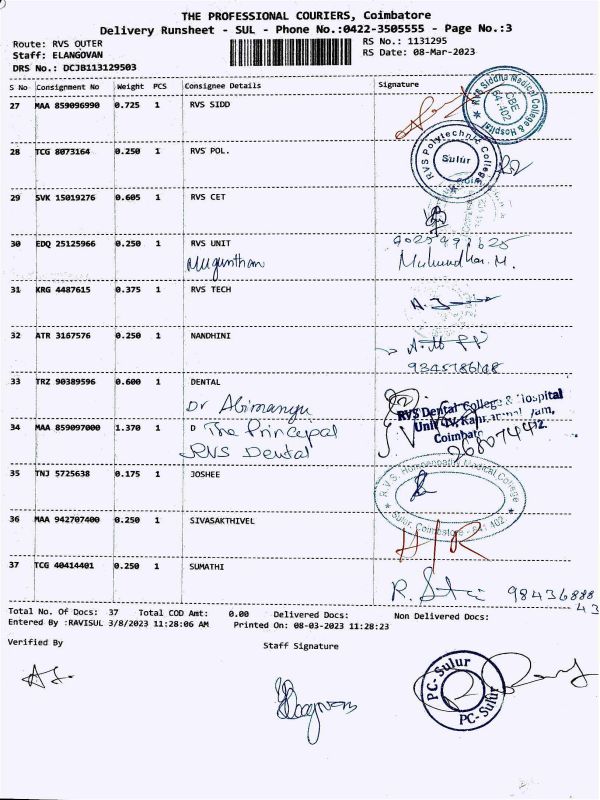 THE PROFESSIONAL COURIERS, Coimbatore
Delivery Runsheet - SUL - Phone No.:0422-3505555 - Page No.:3
Route: RVS OUTER
RS No.: 1131295
Staff: ELANGOVAN
RS Date: 08-Mar-2023
DRS No.: DCJB113129503
S No Consignment No Weight PCS Consignee Details Signature
27 MAA 859096990 0.725 1 RVS SIDD
RVS Siddha Medical College & Hospital
CBE 641 402
28 TCG 8073164 0.250 1 RVS POL.
RVS Polytechnic College
Sulur
29 SVK 15019276 0.605 1 RVS CET
30 EDQ 25125966 0.250 1 RVS UNIT
Mugunthan
31 KRG 4487615 0.375 1 RVS TECH
32 ATR 3167576 0.250 1 NANDHINI
33 TRZ 90389596 0.600 1 DENTAL
Dr Abimanyu
RVS Dental College & Hospital
34 MAA 859097000 1.370 1 D The Principal
RVS Dental
35 TNJ 5725638 0.175 1 JOSHEE
R.V.S. Homeopathy Medical College
Sulur, Coimbatore - 641 402
36 MAA 942707400 0.250 1 SIVASAKTHIVEL
H/R
37 TCG 40414401 0.250 1 SUMATHI
Total No. Of Docs: 37 Total COD Amt: 0.00 Delivered Docs: Non Delivered Docs:
Entered By :RAVISUL 3/8/2023 11:28:06 AM Printed On: 08-03-2023 11:28:23
Verified By
Staff Signature
PC- Sulur
PC- Sulur